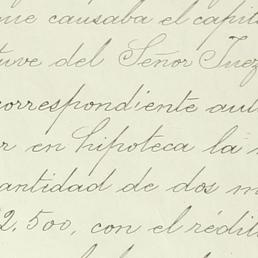 que causaba el capit
tuve del Señor Juez
correspondiente au
r en hipoteca la
antidad de dos m
2,500, con el rédit